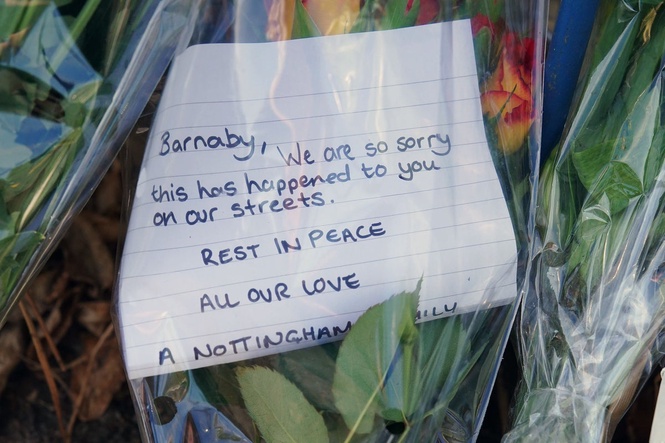 Barnaby, We are so sorry
this has happened to you
on our streets.
REST IN PEACE
ALL OUR LOVE
A NOTTINGHAM